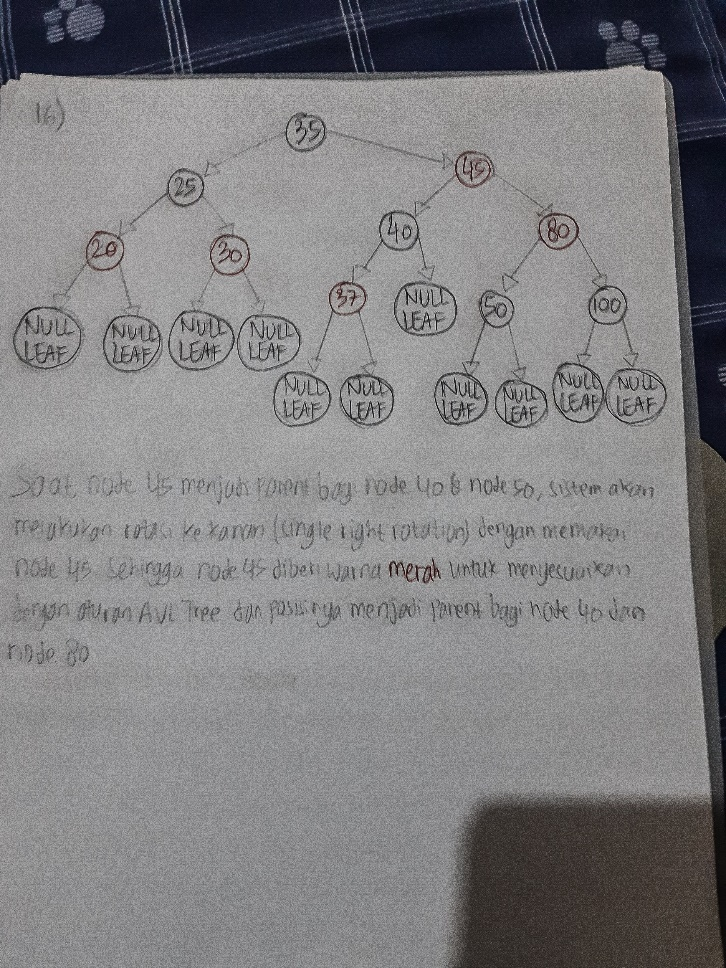 16)
35
25 45
20 30 40 80
37 NULL LEAF 50 100
NULL LEAF NULL LEAF NULL LEAF NULL LEAF
NULL LEAF NULL LEAF NULL LEAF NULL LEAF NULL LEAF NULL LEAF
Saat node 45 menjadi parent bagi node 40 & node 50, sistem akan
melakukan rotasi ke kanan (single right rotation) dengan memakai
node 45 sehingga node 45 diberi warna merah untuk menyesuaikan
dengan aturan AVL Tree dan posisinya menjadi parent bagi node 40 dan
node 80